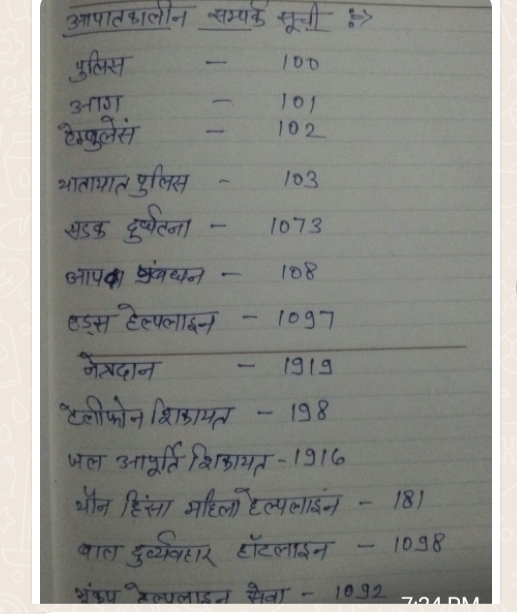 आपातकालीन सम्पर्क सूची :->
पुलिस - 100
आग - 101
ऐम्बुलेंस - 102
यातायात पुलिस - 103
सडक दुर्घटना - 1073
आपदा प्रंबधन - 108
एड्स हेल्पलाइन - 1097
नेत्रदान - 1919
टेलीफोन शिकायत - 198
जल आपूर्ति शिकायत - 1916
यौन हिंसा महिला हेल्पलाइन - 181
बाल दुर्व्यवहार हॉटलाइन - 1098
भूंकप हेल्पलाइन सेवा - 1092
7:24 PM